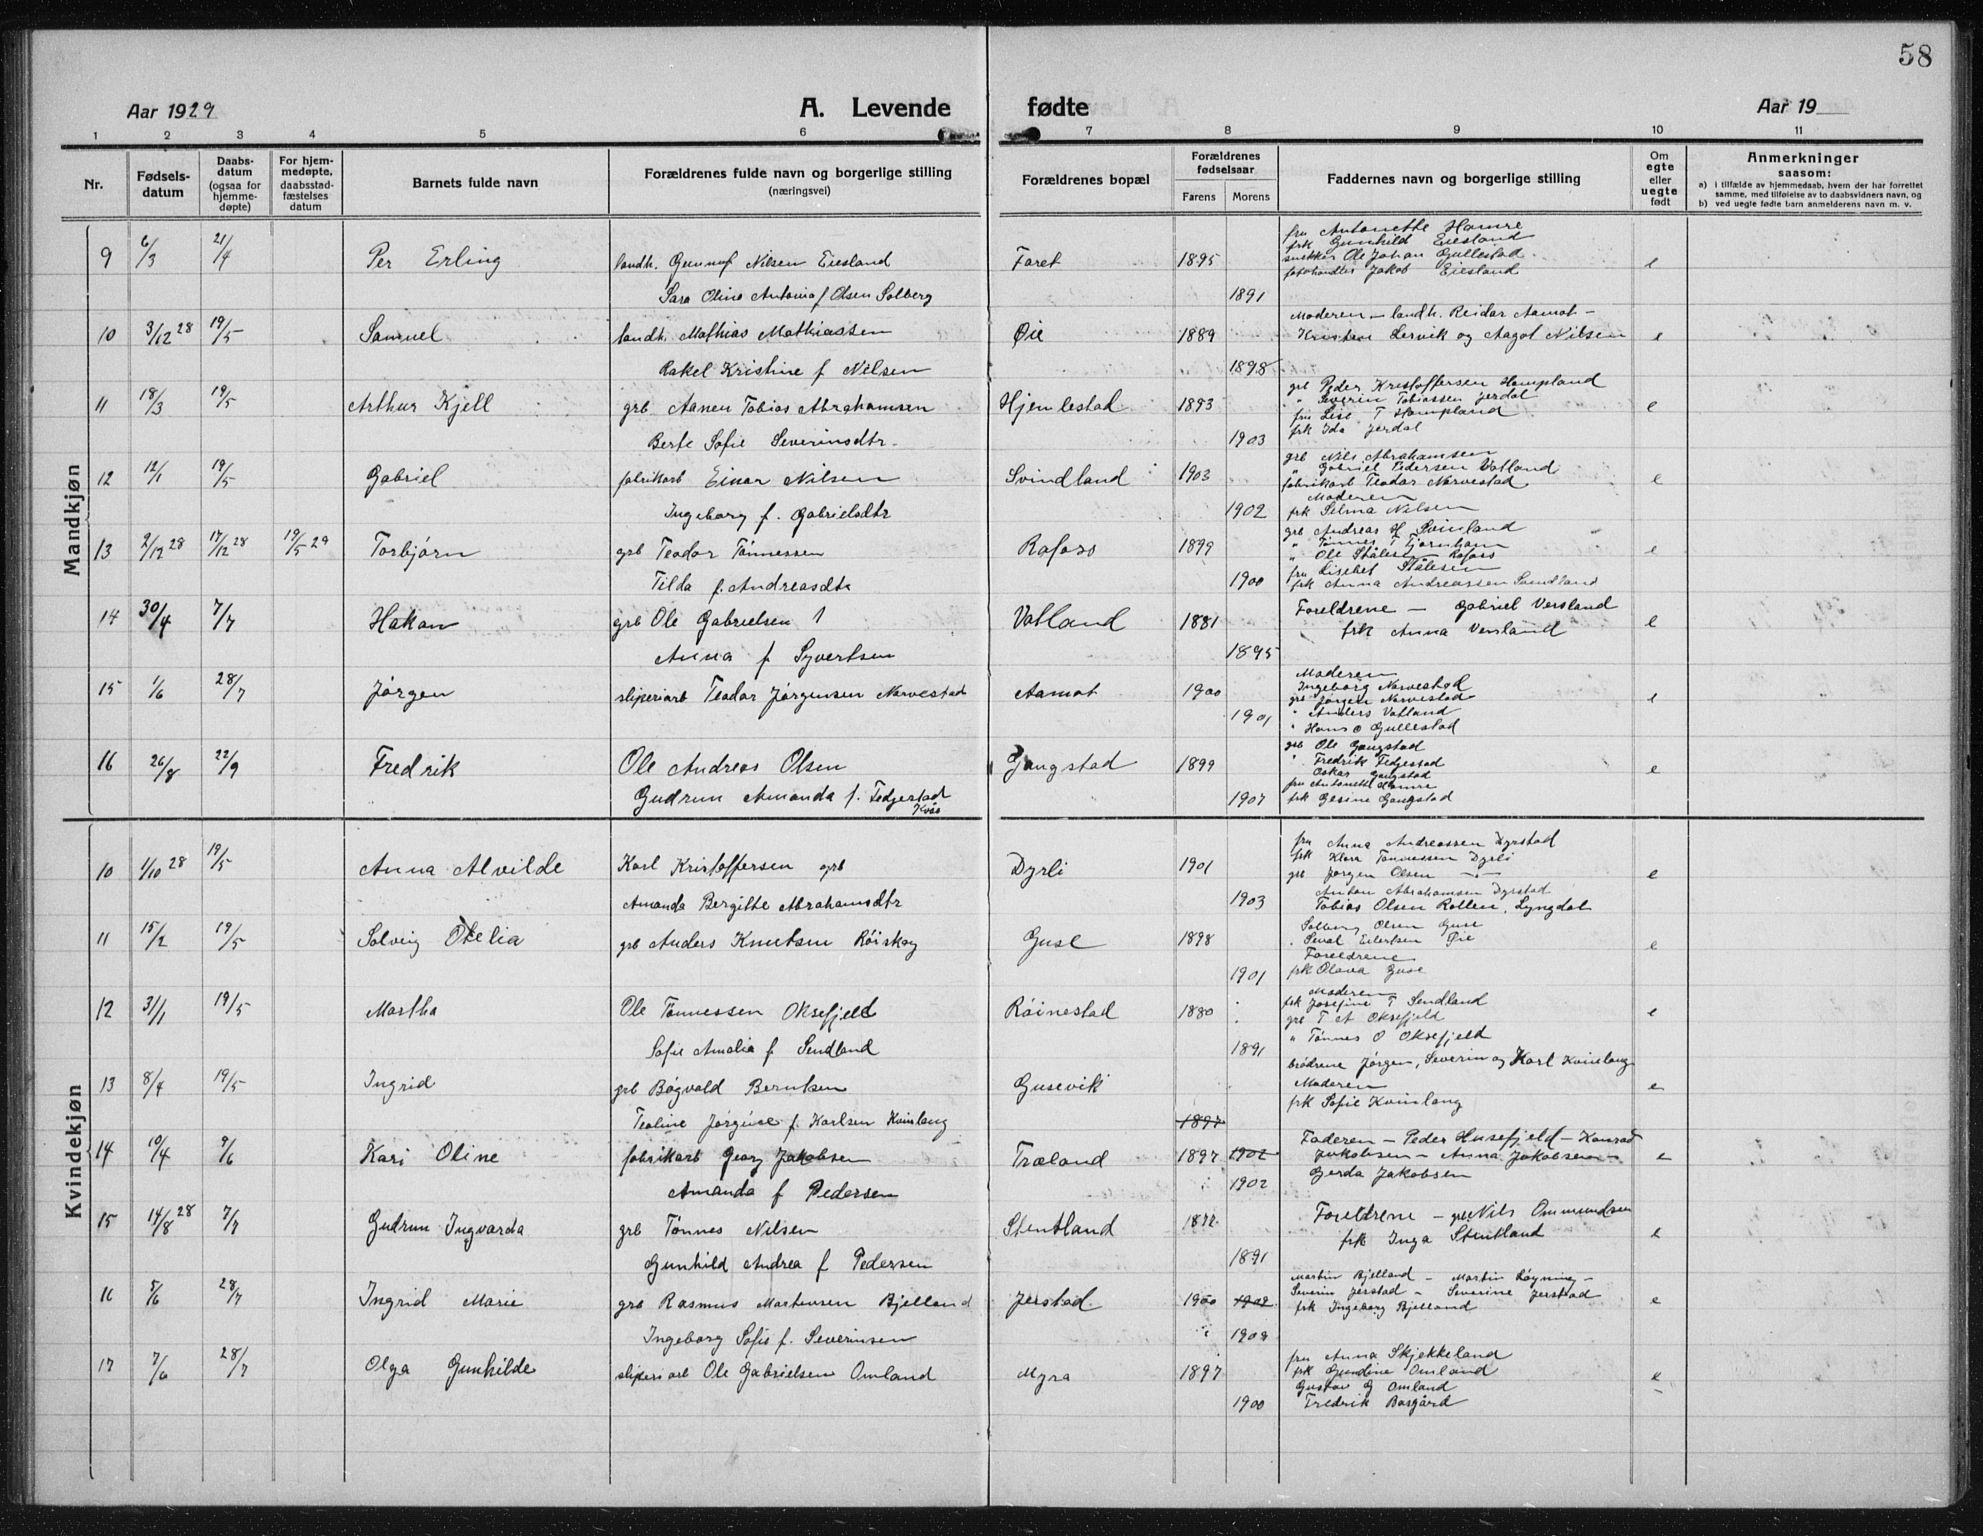 58
Aar 1929 A. Levende fødte Aar 19
1 2 3 4 5 6 7 8 9 10 11
Nr. Fødselsdatum Daabsdatum (ogsaa for hjemmedøpte) For hjemmedøpte, daabsstadfæstelses datum Barnets fulde navn Forældrenes fulde navn og borgerlige stilling (næringsvei) Forældrenes bopæl Forældrenes fødselsaar Farens Morens Faddernes navn og borgerlige stilling Om egte eller uegte født Anmerkninger saasom:
a) i tilfælde av hjemmedaab, hvem der har forrettet samme, med tilføielse av to daabsvidners navn, og
b) ved uegte fødte barn anmelderens navn m. v.
Mandkjøn
9 6/3 21/4 Per Erling landh. Gunnuf Nilsen Eiesland Faret 1895 fru Antonette Hamre e
frk Gunhild Eiesland
snekker Ole Johan Gullestad
Jakob Eiesland
Sara Olina Antonia f Olsen Solberg 1891
10 3/12 28 19/5 Samuel landh. Mathias Mathiassen Øie 1889 Moderen – landh. Reidar Aamot – e
Kristine Lervik og Aagot Nilsen
Rakel Kristine f Nilsen 1898
11 18/3 19/5 Arthur Kjell grb Aanen Tobias Abrahamsen Hjemlestad 1893 grb Peder Kristoffersen Hompland e
" Severin Tobiassen Jerdal
fru Lise T Hompland
frk Ida Jerdal
Berte Sofie Severinsdtr. 1903
12 12/1 19/5 Gabriel fabrikarb Einar Nilsen Svindland 1903 grb Nils Abrahamsen e
" Gabriel Pedersen Vatland
fabrikarb Teodor Narvestad
Moderen
frk Selma Nilsen
Ingeborg f. Gabrielsdtr 1902
13 2/12 28 17/12 28 19/5 29 Torbjørn grb Teodor Tønnessen Rafoss 1899 grb Andreas H Svinland e
" Tønnes T Tjørnhom
" Ole Stålesen Rafoss
fru Lisebet Stålesen
frk Anna Andreassen Sundland
Tilda f. Andreasdtr 1900
14 30/4 7/7 Hakon grb Ole Gabrielsen Vatland 1881 Foreldrene – Gabriel Versland e
frk Anna Versland
Anna f Syvertsen 1895
15 1/6 28/7 Jørgen sliperiarb Teodor Jørgensen Narvestad Aamot 1900 Moderen e
Ingeborg Narvestad
grb Jørgen Narvestad
" Anders Vatland
" Hans O Gullestad
1901
16 26/8 22/9 Fredrik Ole Andreas Olsen Gjangstad 1899 grb Ole Gangstad e
" Fredrik Fedjestad
Oskar Gangstad
fru Antonette Hamre
frk Gesine Gangstad
Gudrun Amanda f. Fedjestad Kvås 1907
Kvindekjøn
10 1/10 28 19/5 Anna Alvilde Karl Kristoffersen grb Dyrli 1901 fru Anna Andreassen Dyrstad e
frk Klara Tønnessen Dyrli
grb Jørgen Olsen –"–
Anton Abrahamsen Dyrstad
Tobias Olsen Rollen, Lyngdal
Amanda Bergitte Abrahamsdtr 1903
11 15/2 19/5 Solveig Otelia grb Anders Knutsen Røiskog Guse 1898 Solberg Olsen Guse e
" Seval Eilertsen Øie
Foreldrene
frk Olava Guse
1901
12 31/1 19/5 Martha Ole Tønnessen Oksefjeld Røinestad 1880 Moderen e
frk Josefine T Sendland
grb T A Oksefjeld
" Tønnes O Oksefjeld
Sofie Amalia f Sendland 1891
13 8/4 19/5 Ingrid grb Bøgvald Berntsen Gusevik brødrene Jørgen, Severin og Karl Kvinlaug e
Moderen
frk Sofie Kvinlaug
Teoline Jørgine f. Karlsen Kvinlaug 1897
14 10/4 9/6 Kari Oline fabrikarb Georg Jakobsen Træland 1897 1902 Faderen – Peder Husefjeld – Konrad e
Jakobsen – Anna Jakobsen –
Gerda Jakobsen
Amanda f Pedersen 1902
15 14/8 28 7/7 Gudrun Ingvarda grb Tønnes Nilsen Stentland 1872 Foreldrene – grb Nils Ommundsen e
frk Inga Stentland
Gunhild Andrea f Pedersen 1891
16 5/6 28/7 Ingrid Marie grb Rasmus Martensen Bjelland Jerstad 1900 1902 Martin Bjelland – Martin Røyning – e
Severin Jerstad – Severine Jerstad
frk Ingeborg Bjelland
Ingeborg Sofie f. Severinsen 1902
17 7/6 28/7 Olga Gunhilde sliperiarb Ole Gabrielsen Omland Myra 1897 fru Anna Skjekkeland e
frk Gundine Omland
Gustav G Omland
Fredrik Bosgård
1900